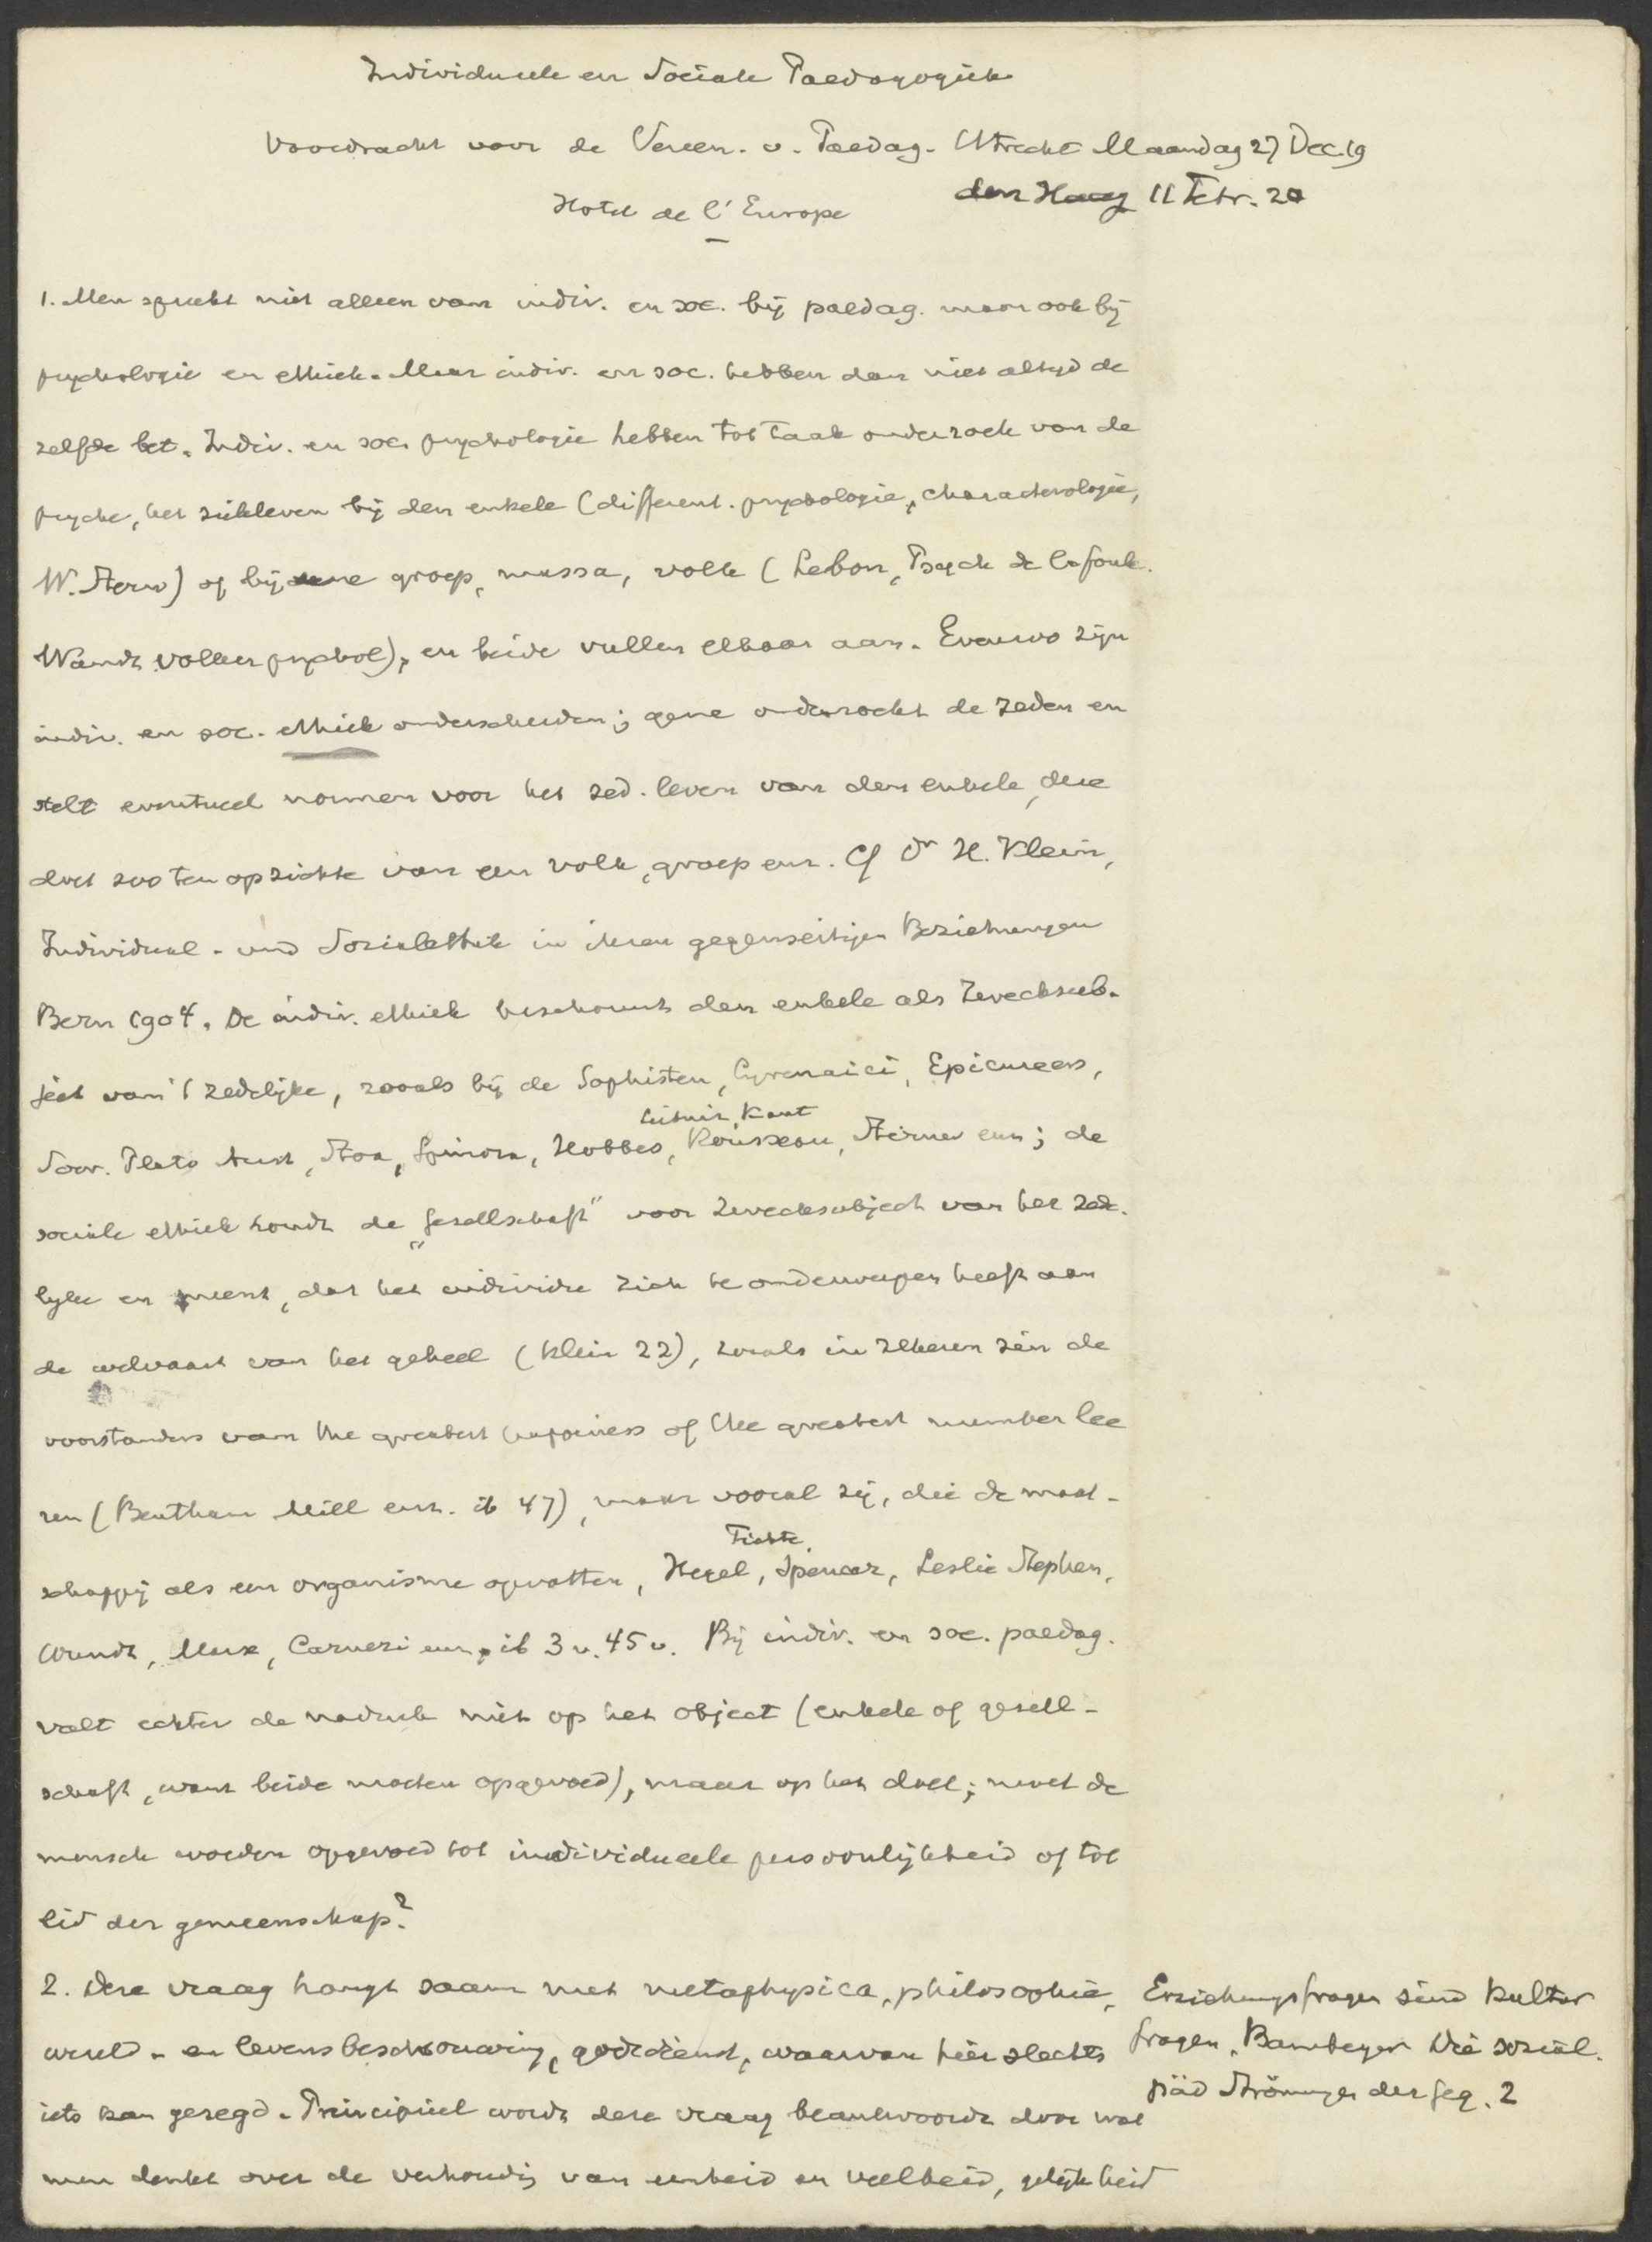 Individueele en Sociale Paedagogiek
Voordracht voor de Vereen. v. Paedag. Utrecht Maandag 27 Dec. 19
den Haag 11 Febr. 20
Hotel de l'Europe
1. Men spreekt niet alleen van indiv. en soc. bij paedag. maar ook bij
psychologie en ethiek. Maar indiv. en soc. hebben dan niet altijd de
zelfde bet. Indiv. en soc. psychologie hebben tot taak onderzoek van de
psyche, het zieleleven bij den enkele (different. psychologie, characterologie,
W. Stern) of bij eene groep, massa, volk (Lebon, Psych de la foule.
Wundt Volkerpsychol), en beide vullen elkaar aan. Evenzo zijn
indiv. en soc. ethiek onderscheiden; gene onderzoekt de zeden en
stelt eventueel normen voor het zed. leven van den enkele, deze
doet zoo ten opzichte van een volk, groep enz. Cf Dr H. Klein,
Individual- und Sozialethik in ihren gegenseitigen Beziehungen
Bern 1904. De indiv. ethiek beschouwt den enkele als Zwecksub-
ject van 't zedelijke, zooals bij de Sophisten, Cyrenaici, Epicureers,
Leibniz, Kant
Socr. Plato Arist, Stoa, Spinoza, Hobbes, Rousseau, Stirner enz; de
sociale ethiek houdt de "Gesellschaft" voor Zwecksubject van het zede-
lijke en meent, dat het individu zich te onderwerpen heeft aan
de welvaart van het geheel (Klein 22), zooals in zekeren zin de
voorstanders van the greatest happiness of the greatest number lee
ren (Bentham Mill enz. ib 47), maar vooral zij, die de maat-
Fichte
schappij als een organisme opvatten, Hegel, Spencer, Leslie Stephen,
Wundt, Marx, Carneri enz, ib 3 v. 45 v. Bij indiv. en soc. paedag.
valt echter de nadruk niet op het object (enkele of gesell-
schaft, want beide moeten opgevoed), maar op het doel; moet de
mensch worden opgevoed tot individueele persoonlijkheid of tot
lid der gemeenschap?
2. Deze vraag hangt saam met metaphysica, philosophie,
wereld- en levensbeschouwing, godsdienst, waarvan hier slechts
iets kan gezegd. Principieel wordt deze vraag beantwoordt door wat
men denkt over de verhoudig van eenheid en veelheid, gelijkheid
Erziehungsfragen sind Kultur
fragen, Bamberger Die sozial.
päd Strömungen der Geg. 2